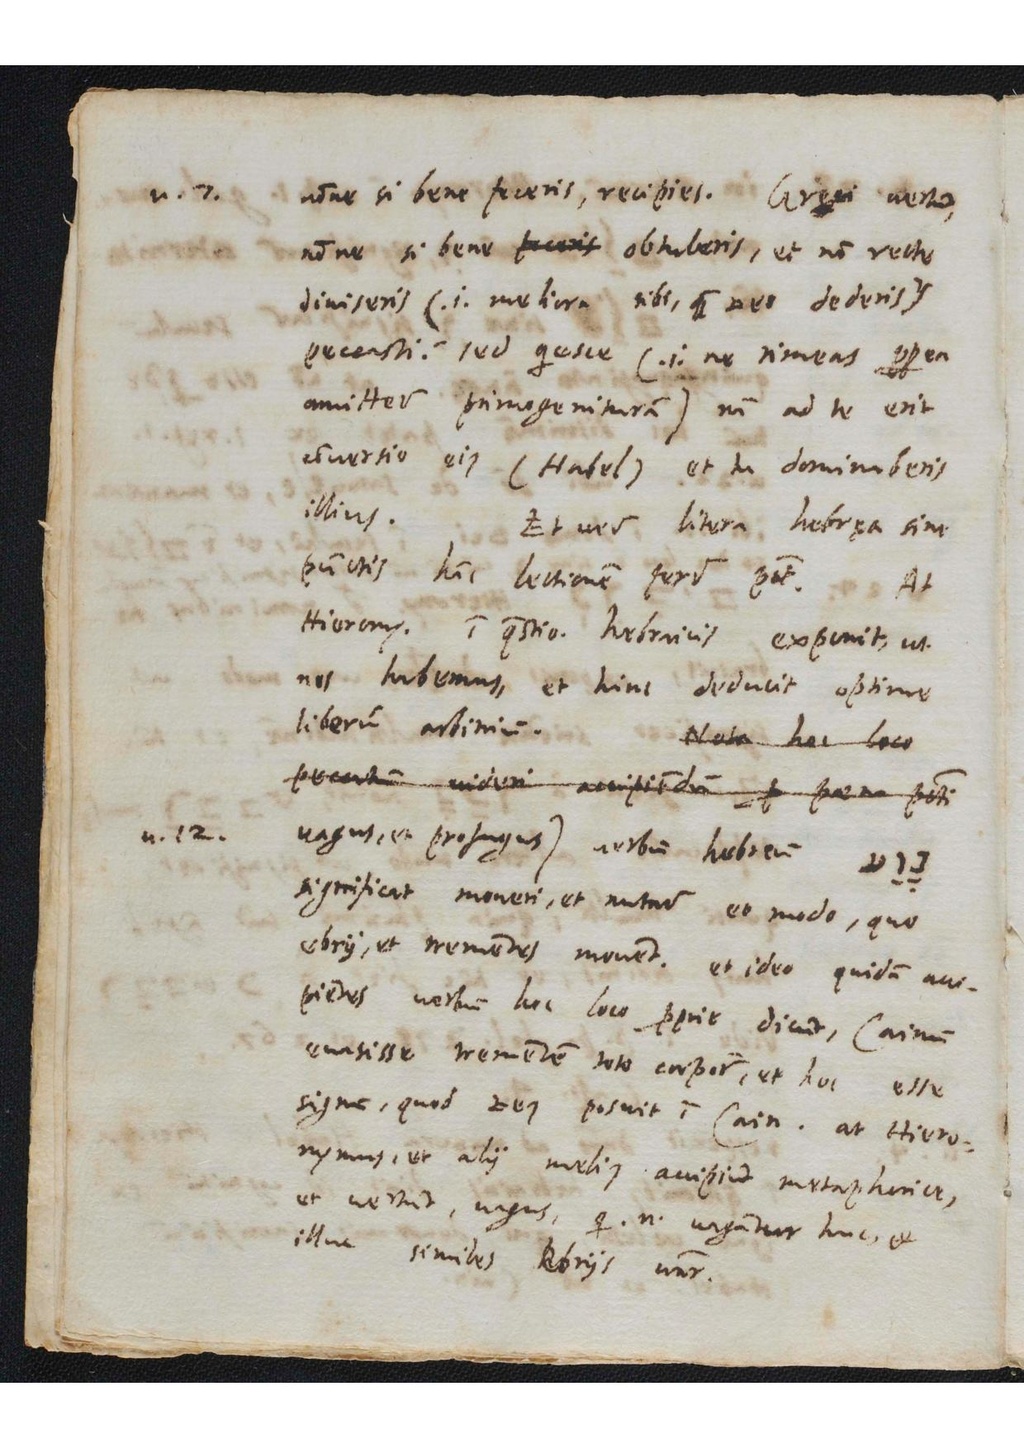 u. 7. nōne si bene feceris, recipies. Gręci vertūt,
nōne si bene feceris obtuleris, et nō recte
diuiseris (.i. meliora tibi, q̄ Deo dederis)
peccasti? sed q̄esce (.i. ne timeas ppea
amitterē primogenituram) nā ad te erit
cōuersio eiꝯ (Habel) et tu dominaberis
illius. Et uerū litera hebręa sine
pūctis hāc lectionē ferrē pōt. At
Hierony. ī q̄stio. hebraicis exponit, ut
nos habemus, et hinc deducit optime
liberū arbitriū. Nota hoc loco
peccatum uideri accipiēdū p̱ pœna pcti
u. 12. uagus, et profugus) verbū hebreū נוד
significat moueri, et nutarē eo modo, quo
ebrij, et tremētes mouēt. et ideo quidā acci-
piētes verbū hoc loco ꝓprie dicūt, Cainū
euasisse tremētē toto corporē, et hoc esse
signū, quod Deꝯ posuit ī Cain. at Hiero-
nymus, et alij meliꝯ accipiūt metaphorice,
et vertūt, uagus, q. n. uagātur huc, et
illuc similes ebrijs vnr̄.